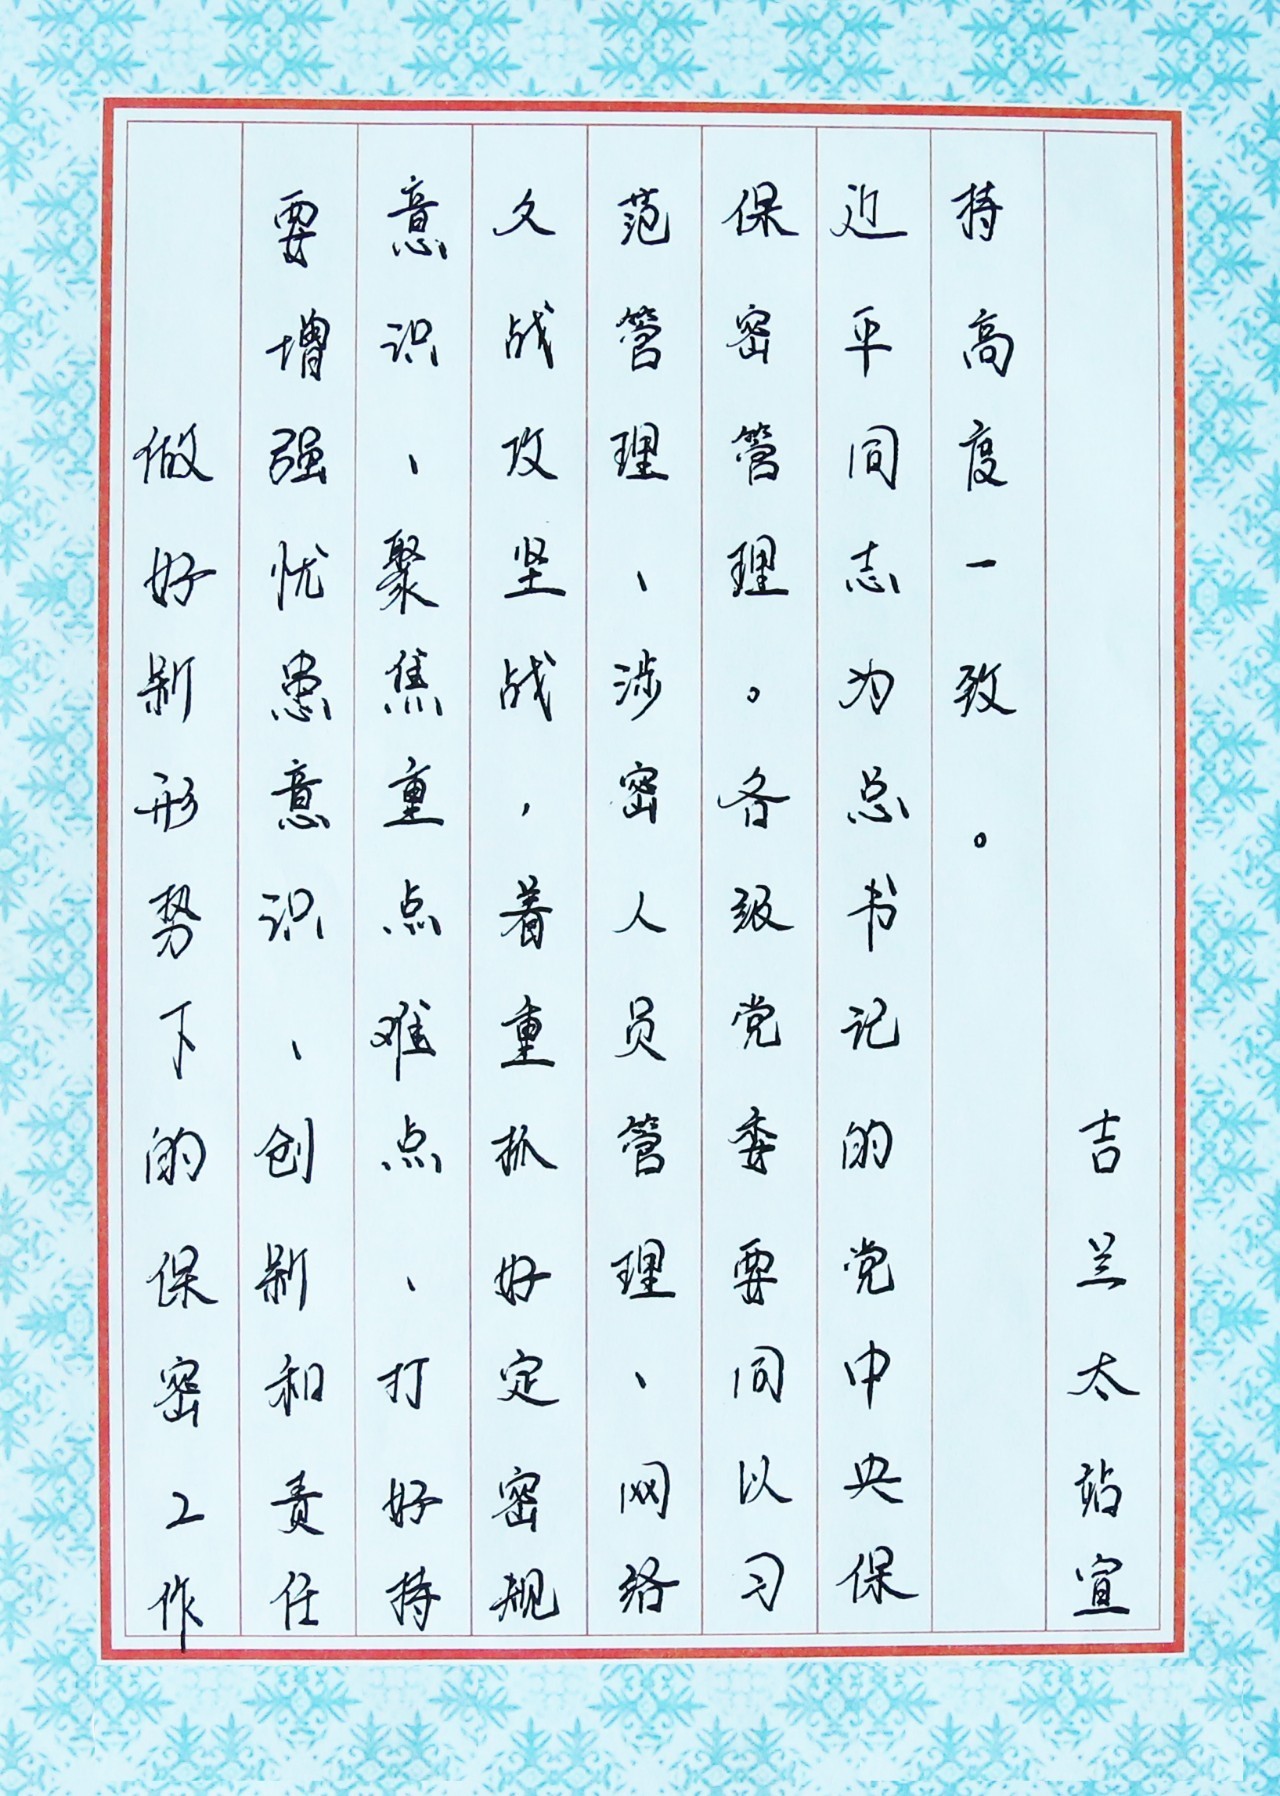 做好新形势下的保密工作
要增强忧患意识、创新和责任
意识、聚焦重点难点、打好持
久战攻坚战，着重抓好定密规
范管理、涉密人员管理、网络
保密管理。各级党委要同以习
近平同志为总书记的党中央保
持高度一致。
吉兰太站宣